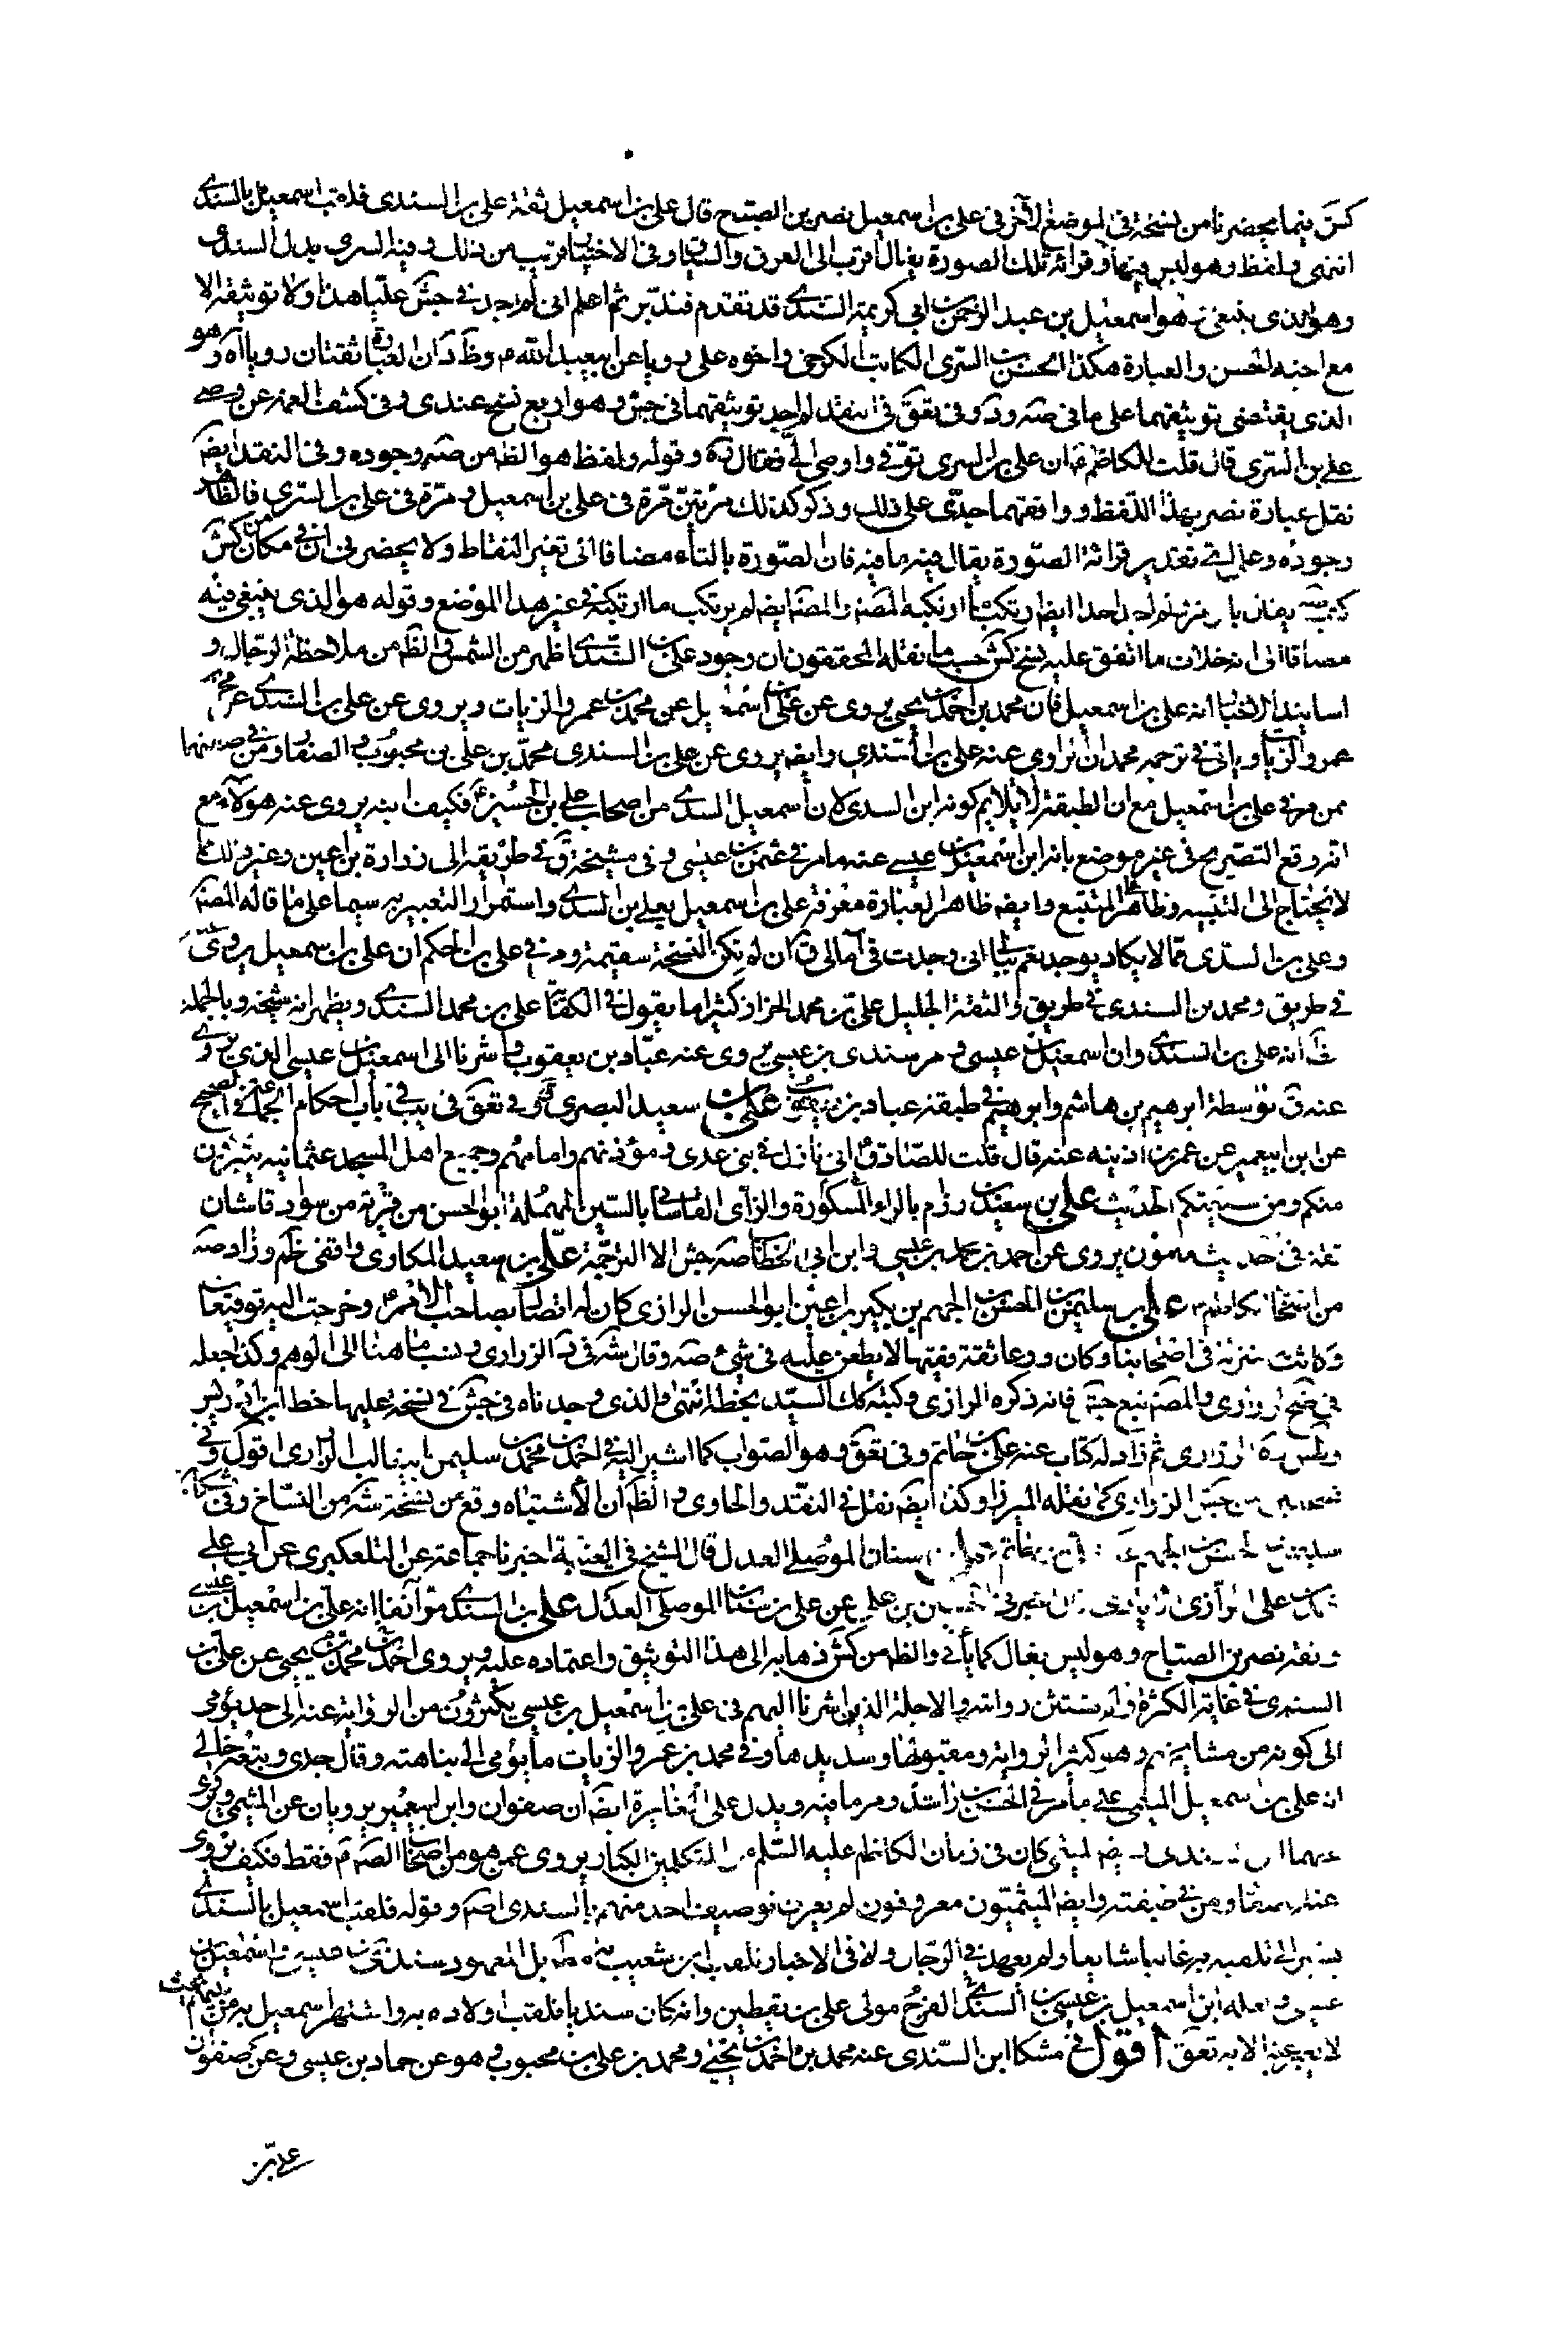 كش فيما يحضرنا من نسخة في الموضع الآخر في علي بن اسمعيل نصر بن الصباح قال علي بن اسمعيل ثقة علي بن السندي فلقب اسمعيل بالسندي
انتهى ولفظ وهو ليس فيها وقرائة تلك الصورة يقال اقرب الى العرف والسياق وفي الاختيار قريب من ذلك وفيه السري بدل السندي
وهو الذي ينبغي هو اسمعيل بن عبد الرحمن بن ابي كريمة السندي قد تقدم فتدبر ثم اعلم اني لم اجد في جش عليا هذا ولا توثيقه الا
مع اخيه الحسن والعبارة هكذا الحسن بن السري الكاتب الكرخي واخوه علي رويا عن ابيعبد الله وظ د ان العبارة ثقتان رويا اه وهو
الذي يقتضي توثيقهما على ما في صه ود وفي تعق في النقد لم اجد توثيقهما في جش وهو اربع نسخ عندي وفي كشف الغمة عن وصي
علي بن السري قال قلت للكاظم ان علي بن السري توفي واوصى الي فقال ره وقوله ولفظ هو الظ من صه وجوده وفي النقد ايضا
نقل عبارة نصر بهذا اللفظ ووافقهما جدي على ذلك وذكر كذلك مرتين مرة في علي بن اسمعيل ومرة في علي بن السري فالظاهر
وجوده وعلى تقدير قرائة الصورة يقال فيه ما فيه فان الصورة بالتاء مضافا الى تغير النقاط ولا يحضرني ان في مكان من كش
كتب يقال بل لم اجد احدا ايضا ارتكب ما ارتكبه المصنف والمصنف ايضا لم يرتكب ما ارتكبه في غير هذا الموضع وقوله هو الذي ينبغي فيه
مضافا الى انه خلاف ما اتفق عليه نسخ كش حسب ما نقله المحققون ان وجود علي بن السندي اظهر من الشمس والظ من ملاحظة الرجال و
اسانيد الاخبار انه علي بن اسمعيل فان محمد بن احمد بن يحيى يروي عن علي بن اسمعيل عن محمد بن عمرو الزيات ويروي عن علي بن السندي عن محمد بن
عمرو الزيات وياتي في ترجمة محمد ان الراوي عنه علي بن السندي وايضا يروي عن علي بن السندي محمد بن علي بن محبوب والصفار ومن في
ممن مر في علي بن اسمعيل مع ان الطبقة لا يلايم كونه ابن السدي لان اسمعيل السدي من اصحاب علي بن الحسين فكيف ابنه يروي عنه هؤلاء مع
انه وقع التصريح في غير موضع بانه ابن اسمعيل بن عيسى عنه ما مر في عثمن بن عيسى وفي مشيخة ق في طريقه الى زرارة بن اعين وغير ذلك مما
لا يحتاج الى التنبيه وظاهر على المتتبع وايضا ظاهر العبارة معرفة علي بن اسمعيل بعلي بن السندي واستمرار التعبير به سيما على ما قاله المصنف
وعلي بن السدي مما لا يكاد يوجد نعم اني وجدت في امالي ق ان لم تكن النسخة سقيمة ومر في علي بن الحكم ان علي بن اسمعيل يروي
في طريق ومحمد بن السندي في طريق والثقة الجليل علي بن محمد الخزاز كثيرا ما يقول في الكفاية علي بن محمد السندي ويظهر انه شيخه وبالجملة
انه علي بن السندي وان اسمعيل بن عيسى ومر سندي بن عيسى يروي عنه عباد بن يعقوب واشرنا الى اسمعيل بن عيسى الذي يروي
عنه ق بتوسطة ابرهيم بن هاشم وابرهيم في طبقة عباد بن يعقوب علي بن سعيد البصري ق وفي تعق في يب في باب احكام الجماعة في الصحيح
عن ابن ابيعمير عن عمر بن اذينه عنه قال قلت للصادق اني نازل في بني عدي ومؤذنهم وامامهم وجميع اهل المسجد عثمانيه يتبرؤن
منكم ومن شيعتكم الحديث علي بن سعيد بن رزام بالراء المكسورة والزاي القاساني بالسين المهملة ابو الحسن من قرية من سواد قاشان
ثقة في حديثه مامون يروي عن احمد بن محمد بن عيسى وابن ابي الخطاب صه جش الا الترجمة علي بن سعيد المكاري واقفي ظم وزاد صه
من اصحاب الكاظم علي بن سليمن بن الحسن بن الجهم بن بكير بن اعين ابو الحسن الرازي كان له اتصال بصاحب الامر وخرجت اليه توقيعات
وكانت منزلة في اصحابنا وكان ورعا ثقة فقيها لا يطعن عليه في شيء صه وقال شه في د الزراري ونسب ما هنا الى الوهم وكذا جعله
في ضح الزراري والمصنف تبع جش فانه ذكره الرازي وكتبه كك السيد بخطه انتهى والذي وجدناه في جش في نسخة عليها خط ابن ادريس
الزراري ثم زاد له كتاب عنه علي بن حاتم وفي تعق وهو الصواب كما اشير اليه في احمد بن محمد بن سليمن ابي غالب الزراري اقول وفي
جش الزراري كما نقله الميرزا وكذا ايضا نقل في النقد والحاوي والظ ان الاشتباه وقع من نسخة شه من النساخ وفي مشكا
سليمن بن الحسن بن الجهم حاتم علي بن سنان الموصلي العدل قال الشيخ في الغيبة اخبرنا جماعة عن التلعكبري عن ابي علي
علي الرازي بن علي عن علي بن سنان الموصلي العدل علي بن السندي مر آنفا انه علي بن اسمعيل بن عيسى
وثقه نصر بن الصباح وهو ليس بغال كما يأتي والظ من كش ذهابه الى هذا التوثيق واعتماده عليه ويروي احمد بن محمد بن يحيى عن علي بن
السندي في غاية الكثرة ولم يستثن رواته والاجلة الذين اشرنا اليهم في علي بن اسمعيل بن عيسى يكثرون من الرواية عنه الى حد يؤمي
الى كونه من مشايخهم وهو كثير الرواية ومقبولها وسديدها وفي محمد بن عمرو الزيات ما يؤمي الى نباهته وقال جدي ويتبعه خالي
ان علي بن اسمعيل الميثمي على ما مر في الحسن بن راشد ومر ما فيه ويدل على المغايرة ايضا ان صفوان وابن ابيعمير يرويان عن الميثمي ويروي
عنهما السندي الميثمي كان في زمان الكاظم عليه السلم من المتكلمين الكبار يروي عمن هو من اصحاب الصادق فقط فكيف يروي
عنه الصفار ومن في طبقته وايضا الميثميون معروفون لم يعرف توصيف احد منهم بالسندي اصلا وقوله فلقب اسمعيل بالسندي
يشير الى تلقبه به غالبا شايعا ولم يعهد في الرجال ولا في الاخبار تلقب ابن شعيب به بل المعهود سندي بن عيسى واسمعيل بن
عيسى ولعله ابن اسمعيل بن عيسى بن الفرج السندي مولى علي بن يقطين وانه كان سنديا فلقب اولاده به واشتهر اسمعيل به من بينهم بحيث
لا يعبر عنه الا به تعق اقول في مشكا ابن السندي عنه محمد بن احمد بن يحيى ومحمد بن علي بن محبوب وهو عن حماد بن عيسى وعن صفوان
علي بن